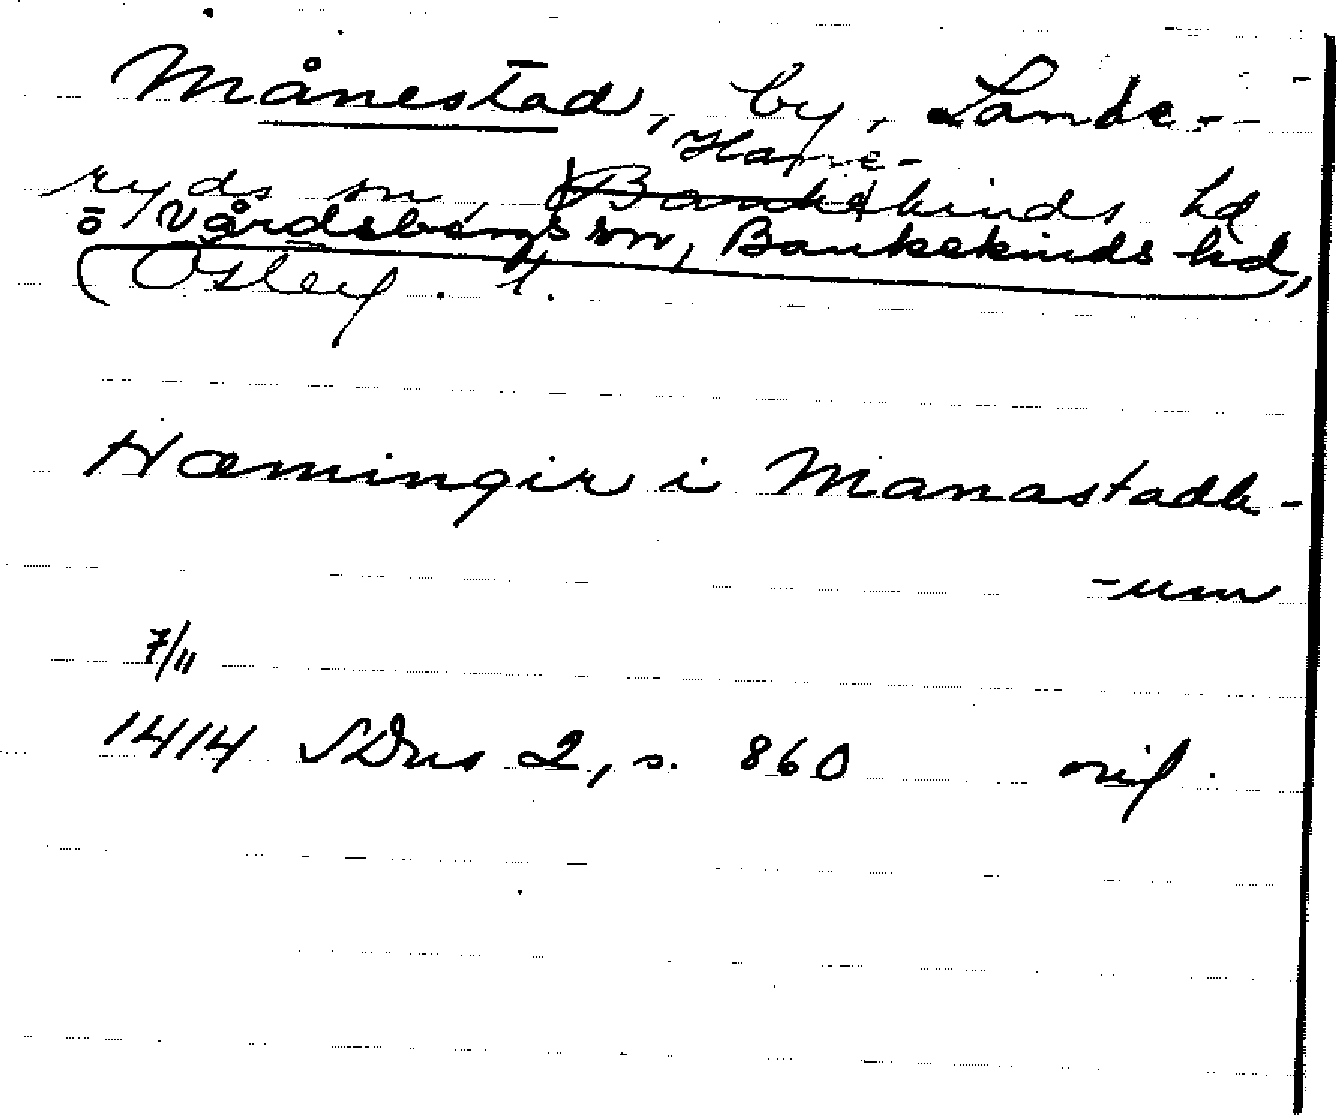 Månestad, by, Lambe-
Hane-
ryds sn, Bankekinds hd
o Vårdsbergs sn, Bankekinds hd,
(Österg. l.)
Hæmingir i Manastadh-
-um
7/11
1414 SDns 2, s. 860 orig.